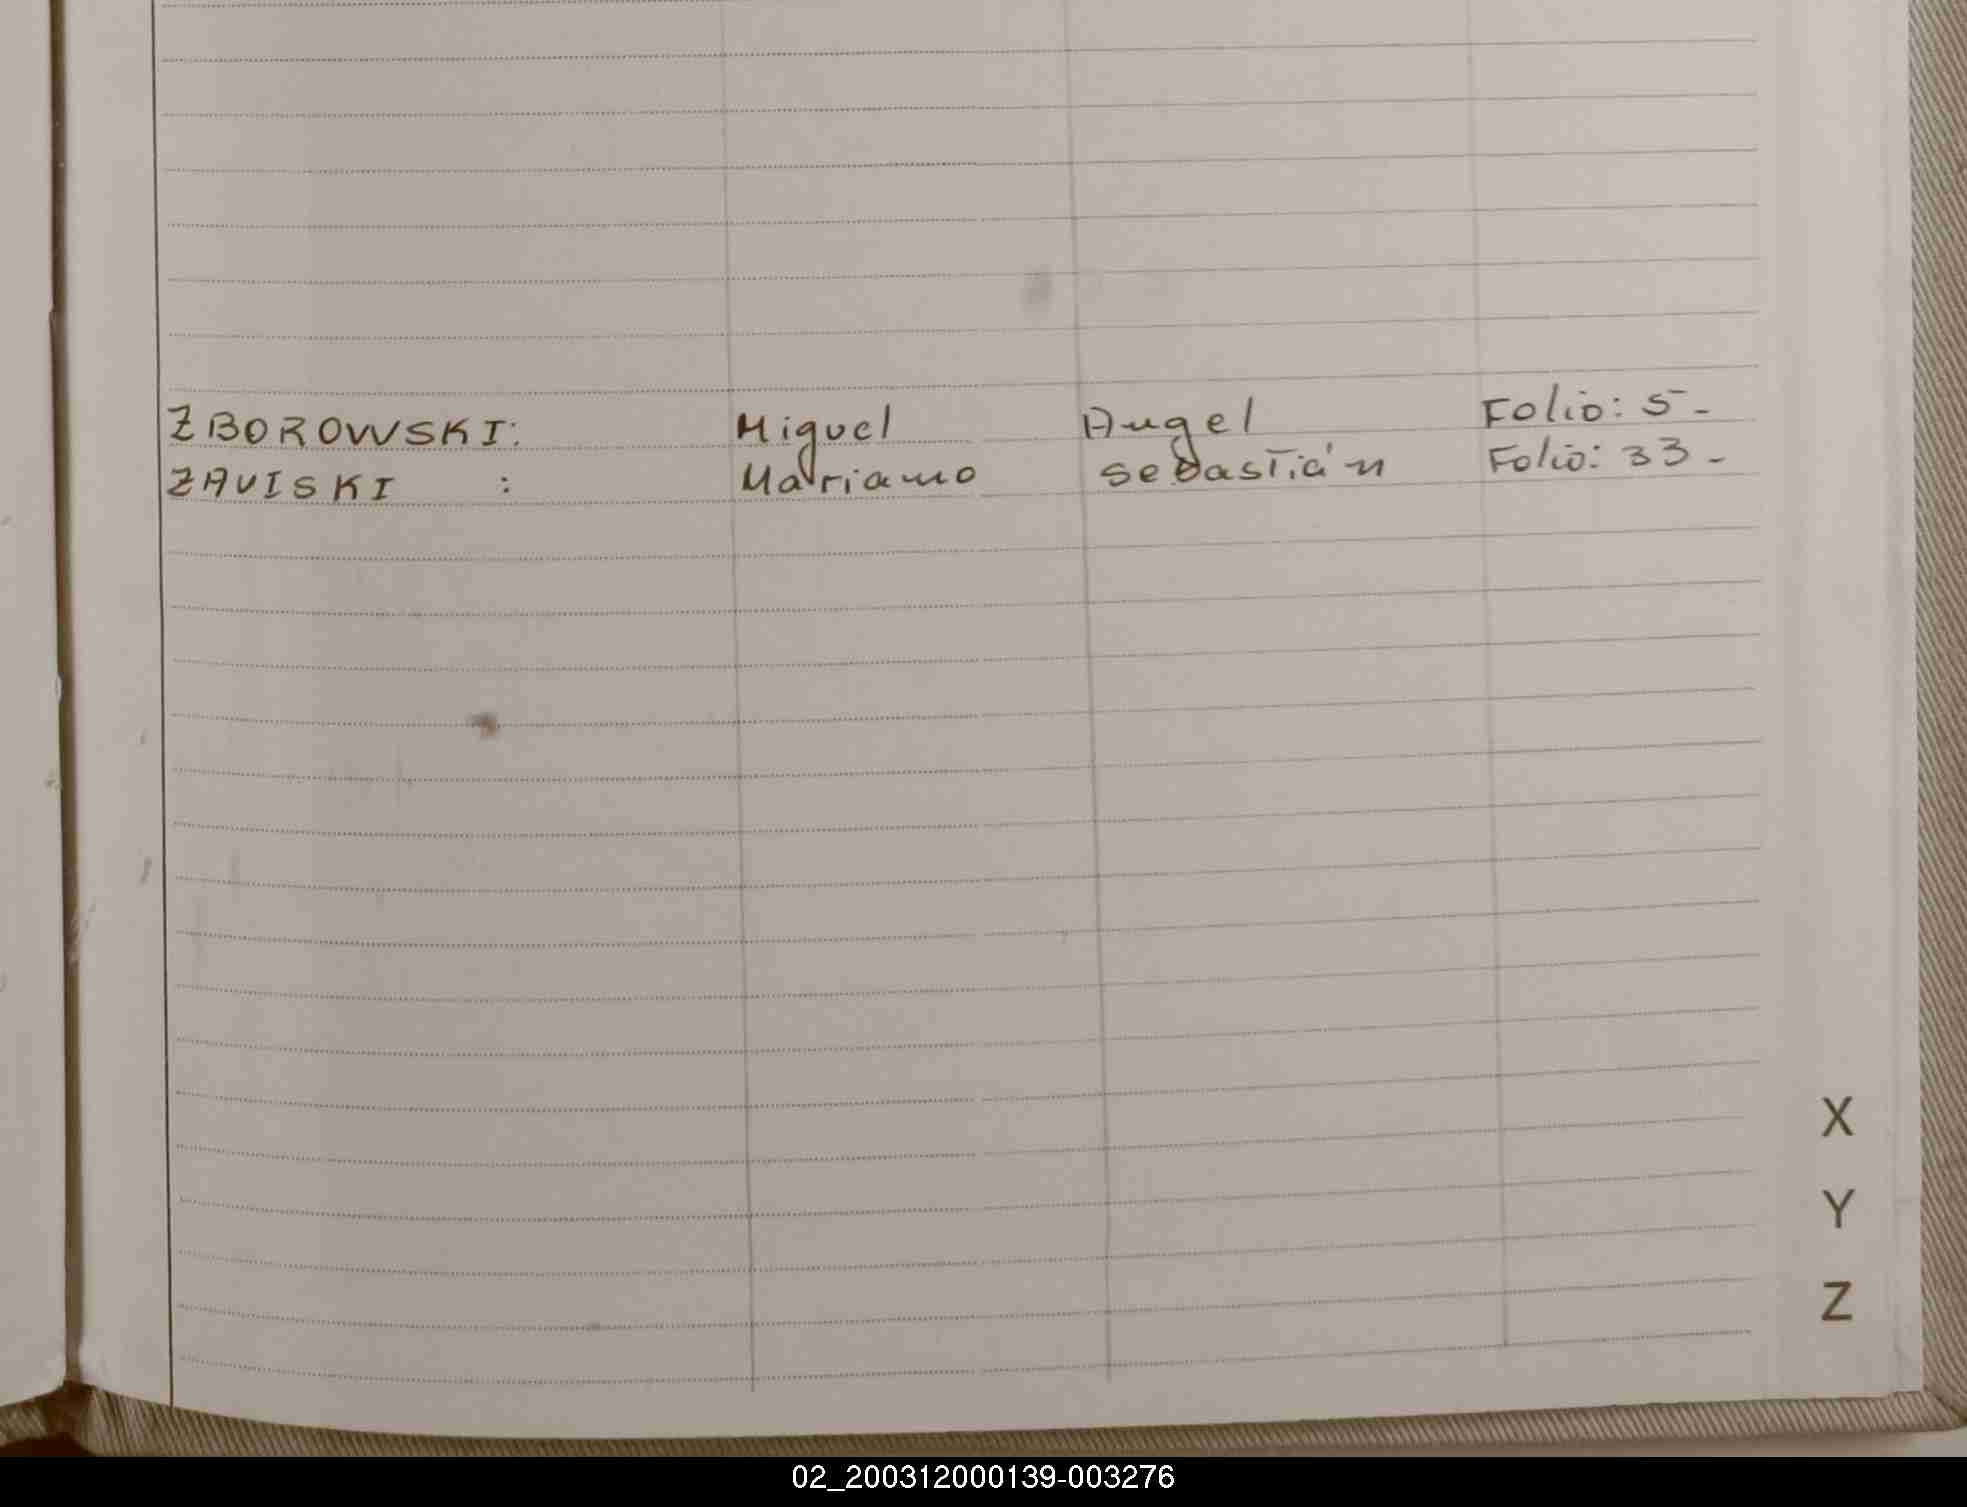 ZBOROWSKI: Miguel Angel Folio: 5-
ZAVISKI : Mariano Sebastián Folio: 33-
X
Y
Z
02_200312000139-003276